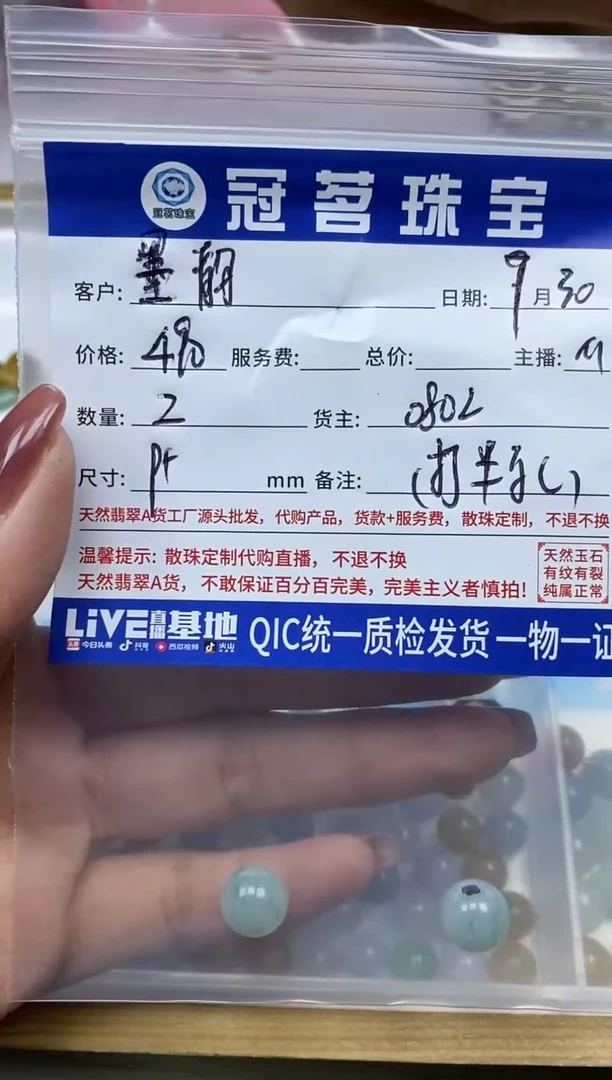 冠茗珠宝
冠茗珠宝
客户: 墨 翮 日期: 9月30
价格: 服务费: 总价: 主播: M
数量: 2 货主: 0802
尺寸: mm 备注: (打半孔)
天然翡翠A货工厂源头批发, 代购产品, 货款+服务费, 散珠定制, 不退不换
温馨提示: 散珠定制代购直播, 不退不换
天然翡翠A货, 不敢保证百分百完美, 完美主义者慎拍!
天然玉石
有纹有裂
纯属正常
LiVE直播基地 QIC统一质检发货一物一证
头条 今日头条 抖音 西瓜视频 火山